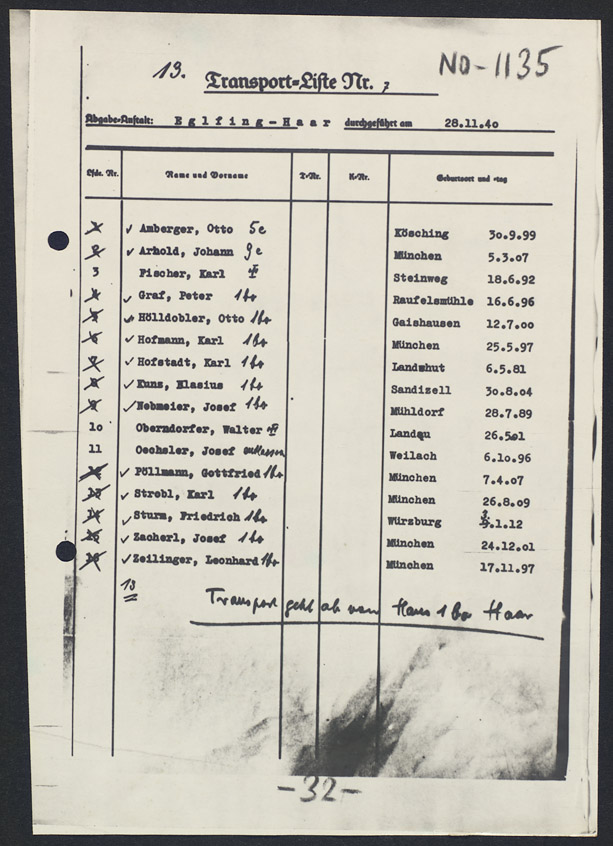 NO-1135
13. Transport-Liste Nr. 7
Abgabe-Anstalt: Eglfing-Haar durchgeführt am 28.11.40
Lfde. Nr. Name und Vorname Z-Nr. K-Nr. Geburtsort und -tag
1 ✓ Amberger, Otto 5c Kösching 30.9.99
2 ✓ Arhold, Johann 9c München 5.3.07
3 Fischer, Karl Steinweg 18.6.92
4 ✓ Graf, Peter 1b4 Raufelsmühle 16.6.96
5 ✓ Hölldobler, Otto 1b4 Gaishausen 12.7.00
6 ✓ Hofmann, Karl 1b4 München 25.5.97
7 ✓ Hofstadt, Karl 1b4 Landshut 6.5.81
8 ✓ Kunz, Blasius 1b4 Sandizell 30.8.04
9 ✓ Nebmeier, Josef 1b4 Mühldorf 28.7.89
10 Oberndorfer, Walter Landau 26.5.01
11 Oechsler, Josef entlassen Weilach 6.10.96
12 ✓ Pöllmann, Gottfried 1b4 München 7.4.07
13 ✓ Strobl, Karl 1b4 München 26.8.09
14 ✓ Sturm, Friedrich 1b4 Würzburg 3.1.12
15 ✓ Zacherl, Josef 1b4 München 24.12.01
16 ✓ Zeilinger, Leonhard 1b4 München 17.11.97
13
Transport geht ab von Haus 1 Haar
-32-